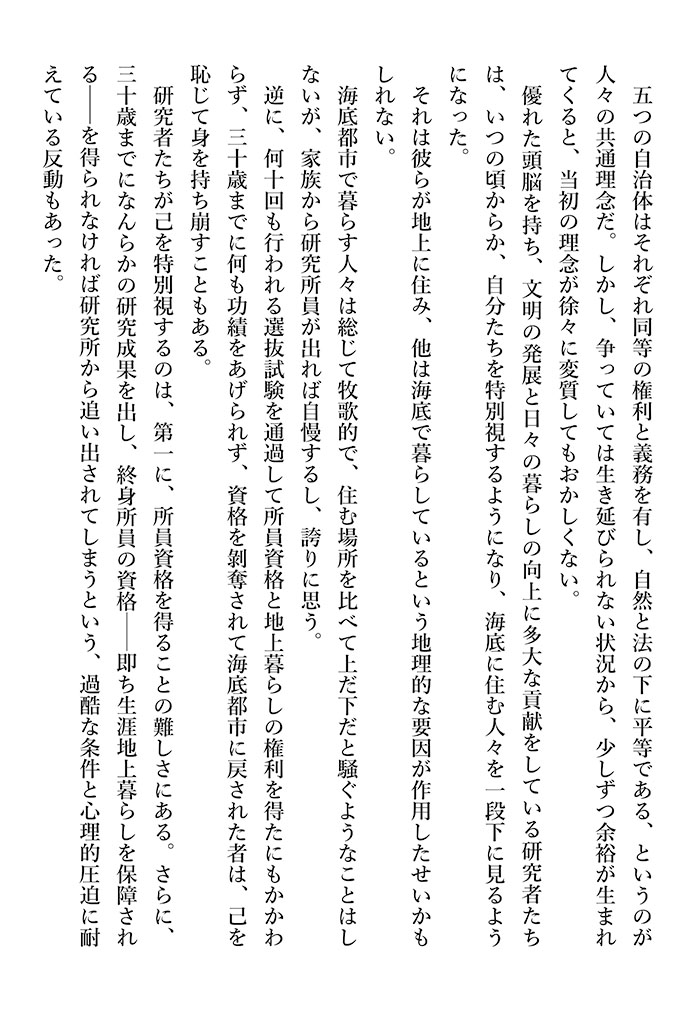 五つの自治体はそれぞれ同等の権利と義務を有し、自然と法の下に平等である、というのが
人々の共通理念だ。しかし、争っていては生き延びられない状況から、少しずつ余裕が生まれ
てくると、当初の理念が徐々に変質してもおかしくない。
優れた頭脳を持ち、文明の発展と日々の暮らしの向上に多大な貢献をしている研究者たち
は、いつの頃からか、自分たちを特別視するようになり、海底に住む人々を一段下に見るよう
になった。
それは彼らが地上に住み、他は海底で暮らしているという地理的な要因が作用したせいかも
しれない。
海底都市で暮らす人々は総じて牧歌的で、住む場所を比べて上だ下だと騒ぐようなことはし
ないが、家族から研究所員が出れば自慢するし、誇りに思う。
逆に、何十回も行われる選抜試験を通過して所員資格と地上暮らしの権利を得たにもかかわ
らず、三十歳までに何も功績をあげられず、資格を剝奪されて海底都市に戻された者は、己を
恥じて身を持ち崩すこともある。
研究者たちが己を特別視するのは、第一に、所員資格を得ることの難しさにある。さらに、
三十歳までになんらかの研究成果を出し、終身所員の資格――即ち生涯地上暮らしを保障され
る――を得られなければ研究所から追い出されてしまうという、過酷な条件と心理的圧迫に耐
えている反動もあった。